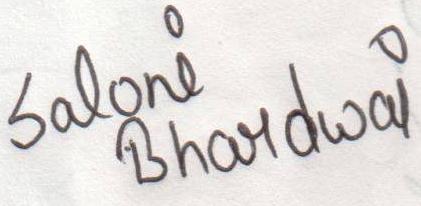 Saloni
Bhardwaj